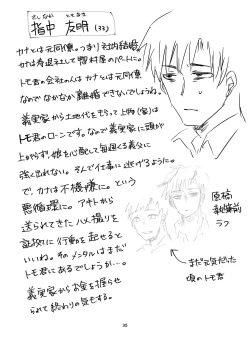 さしなか ともあき
指中 友明(33)
カナとは元同僚。つまり社内結婚。
カナは寿退社して惣村屋のパートに。
トモ君の会社の人はカナとは元同僚
なのでなかなか離婚できないでしょうね。
義実家から土地代をもらって上物(家)は
トモ君のローンです。なので義実家に頭が
上がらず、娘を心配して毎週くる義父に
強く出れない。そんで仕事に逃げるように。
で、カナは不機嫌に。という
悪循環に。アキトから
送られてきたハメ撮りを
証拠に行動を起せると
いいね。そのメンタルはまだ
トモ君にあるでしょうが…。
義実家からお金を握らせ
られて終わりの気もする。
原稿
執筆前
ラフ
まだ元気だった
頃のトモ君